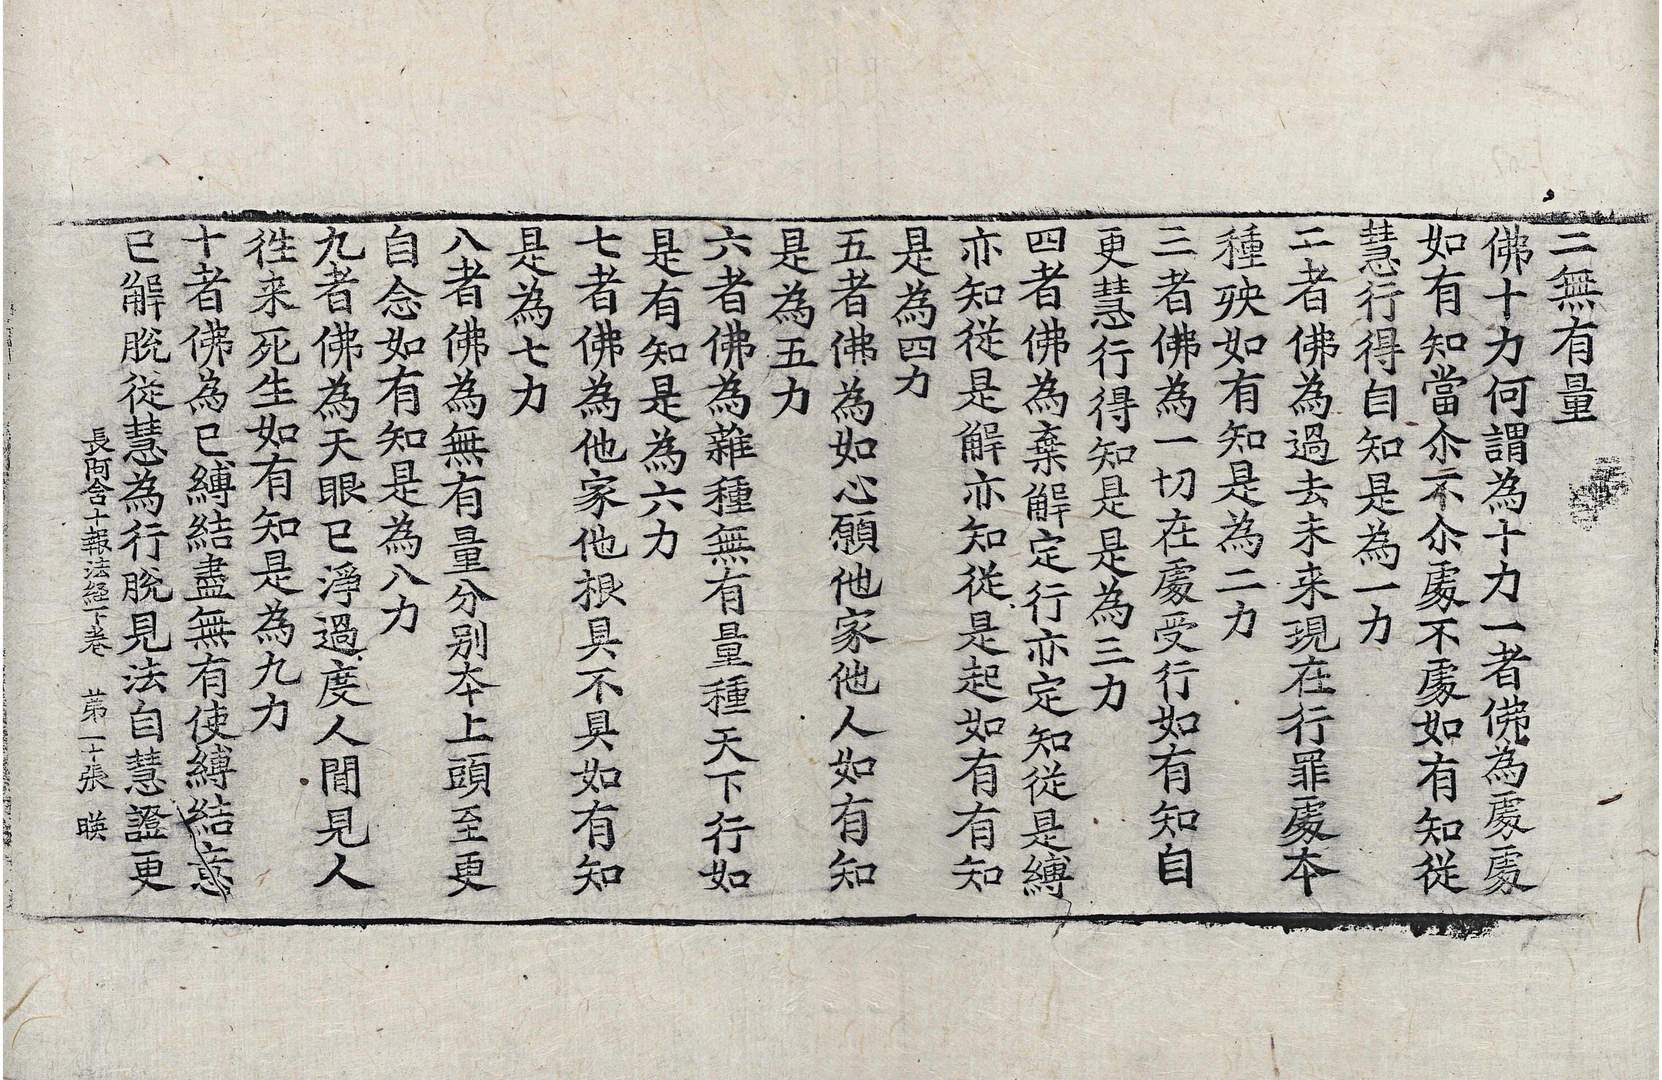 二無有量
佛十力何謂為十力一者佛為處處
如有知當尒不尒處不處如有知從
慧行得自知是為一力
二者佛為過去未来現在行罪處夲
種殃如有知是為二力
三者佛為一切在處受行如有知自
更慧行得知是是為三力
四者佛為棄解定行亦定知從是縛
亦知從是解亦知從是起如有有知
是為四力
五者佛為如心願他家他人如有知
是為五力
六者佛為雜種無有量種天下行如
是有知是為六力
七者佛為他家他根具不具如有知
是為七力
八者佛為無有量分別夲上頭至更
自念如有知是為八力
九者佛為天眼已淨過度人間見人
徃来死生如有知是為九力
十者佛為已縛結盡無有使縛結意
已解脫從慧為行脫見法自慧證更
長阿含十報法経下卷 苐二十張 暎